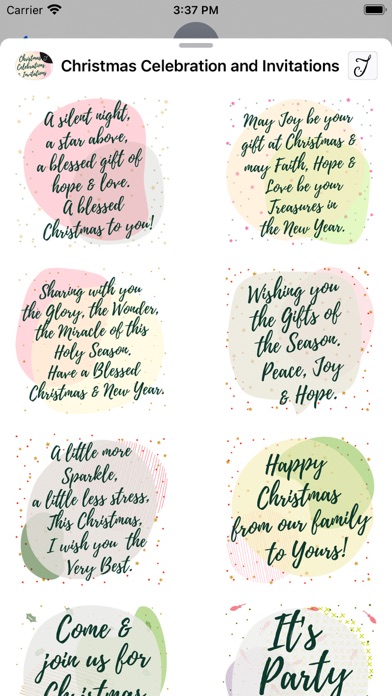 Carrier 3:37 PM
Christmas Celebrations & Invitations
Christmas Celebration and Invitations
A silent night,
a star above,
a blessed gift of
hope & love.
A blessed
Christmas to you!
May Joy be your
gift at Christmas &
may Faith, Hope &
Love be your
Treasures in
the New Year.
Sharing with you
the Glory, the Wonder,
the Miracle of this
Holy Season.
Have a Blessed
Christmas & New Year.
Wishing you
the Gifts of
the Season.
Peace, Joy
& Hope.
A little more
Sparkle,
a little less stress,
This Christmas,
I wish you the
Very Best.
Happy
Christmas
from our family
to Yours!
Come &
join us for
Christmas
It's
Party